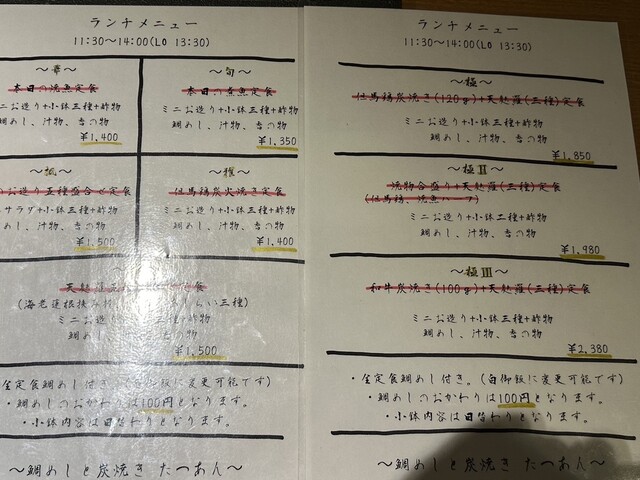 ランチメニュー
11:30〜14:00(LO 13:30)
〜華〜
本日の焼魚定食
ミニお造り+小鉢三種+酢物
鯛めし、汁物、香の物
¥1,400
〜旬〜
本日の煮魚定食
ミニお造り+小鉢三種+酢物
鯛めし、汁物、香の物
¥1,350
お造り五種盛合せ定食
サラダ+小鉢三種+酢物
鯛めし、汁物、香の物
¥1,500
但馬鶏炭火焼き定食
ミニお造り+小鉢三種+酢物
鯛めし、汁物、香の物
¥1,400
天麩羅 定食
(海老蓮根挟み 三種)
ミニお造り 三種+酢物
鯛めし 香の物
¥1,500
全定食鯛めし付き。(白御飯に変更可能です)
・鯛めしのおかわりは100円となります。
・小鉢内容は日替わりとなります。
〜鯛めしと炭焼き たつあん〜
ランチメニュー
11:30〜14:00(LO 13:30)
〜極〜
但馬鶏炭焼き(120g)+天麩羅(三種)定食
ミニお造り+小鉢三種+酢物
鯛めし、汁物、香の物
¥1,850
〜極Ⅱ〜
焼物合盛り+天麩羅(三種)定食
(但馬鶏、焼魚ハーフ)
ミニお造り+小鉢二種+酢物
鯛めし、汁物、香の物
¥1,980
〜極Ⅲ〜
和牛炭焼き(100g)+天麩羅(三種)定食
ミニお造り+小鉢三種+酢物
鯛めし、汁物、香の物
¥2,380
・全定食鯛めし付き。(白御飯に変更可能です)
・鯛めしのおかわりは100円となります。
・小鉢内容は日替わりとなります。
〜鯛めしと炭焼き たつあん〜